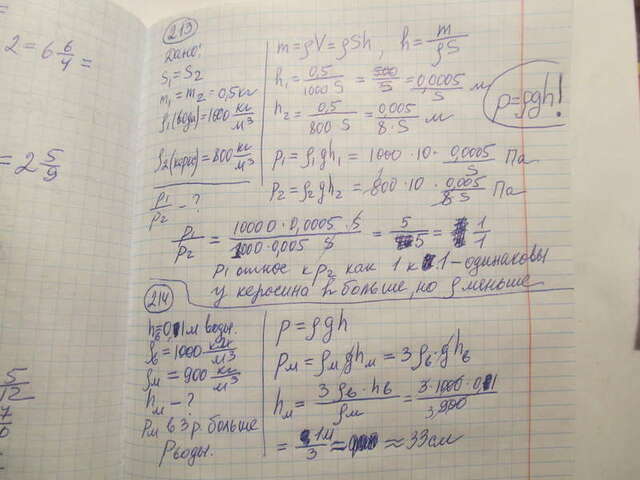 2 = 6 6/4 =
= 2 5/9
5/12
213
Дано:
S₁ = S₂
m₁ = m₂ = 0,5 кг
ρ₁(вода) = 1000 кг/м³
ρ₂(керос) = 800 кг/м³
p₁/p₂ - ?
m = ρV = ρSh, h = m/ρS
h₁ = 0,5/1000 S = 500/S = 0,0005/S м
h₂ = 0,5/800 S = 0,005/8·S м
p=ρgh!
p₁ = ρ₁gh₁ = 1000 · 10 · 0,0005/S Па
p₂ = ρ₂gh₂ = 800 · 10 · 0,005/8S Па
p₁/p₂ = 10000 · 0,0005 · S/1000 · 0,005 S = 5/5 = 1/1
p₁ относ к p₂ как 1 к 1 - одинаковы
у керосина h больше, но ρ меньше
214
hв = 0,1 м воды.
ρв = 1000 кг/м³
ρм = 900 кг/м³
hм - ?
Pм в 3 р. больше
Pводы.
p = ρgh
pм = ρм g hм = 3ρв · g hв
hм = 3ρв · hв/ρм = 3 · 1000 · 0,1/900
= 1м/3 ≈ 33 см